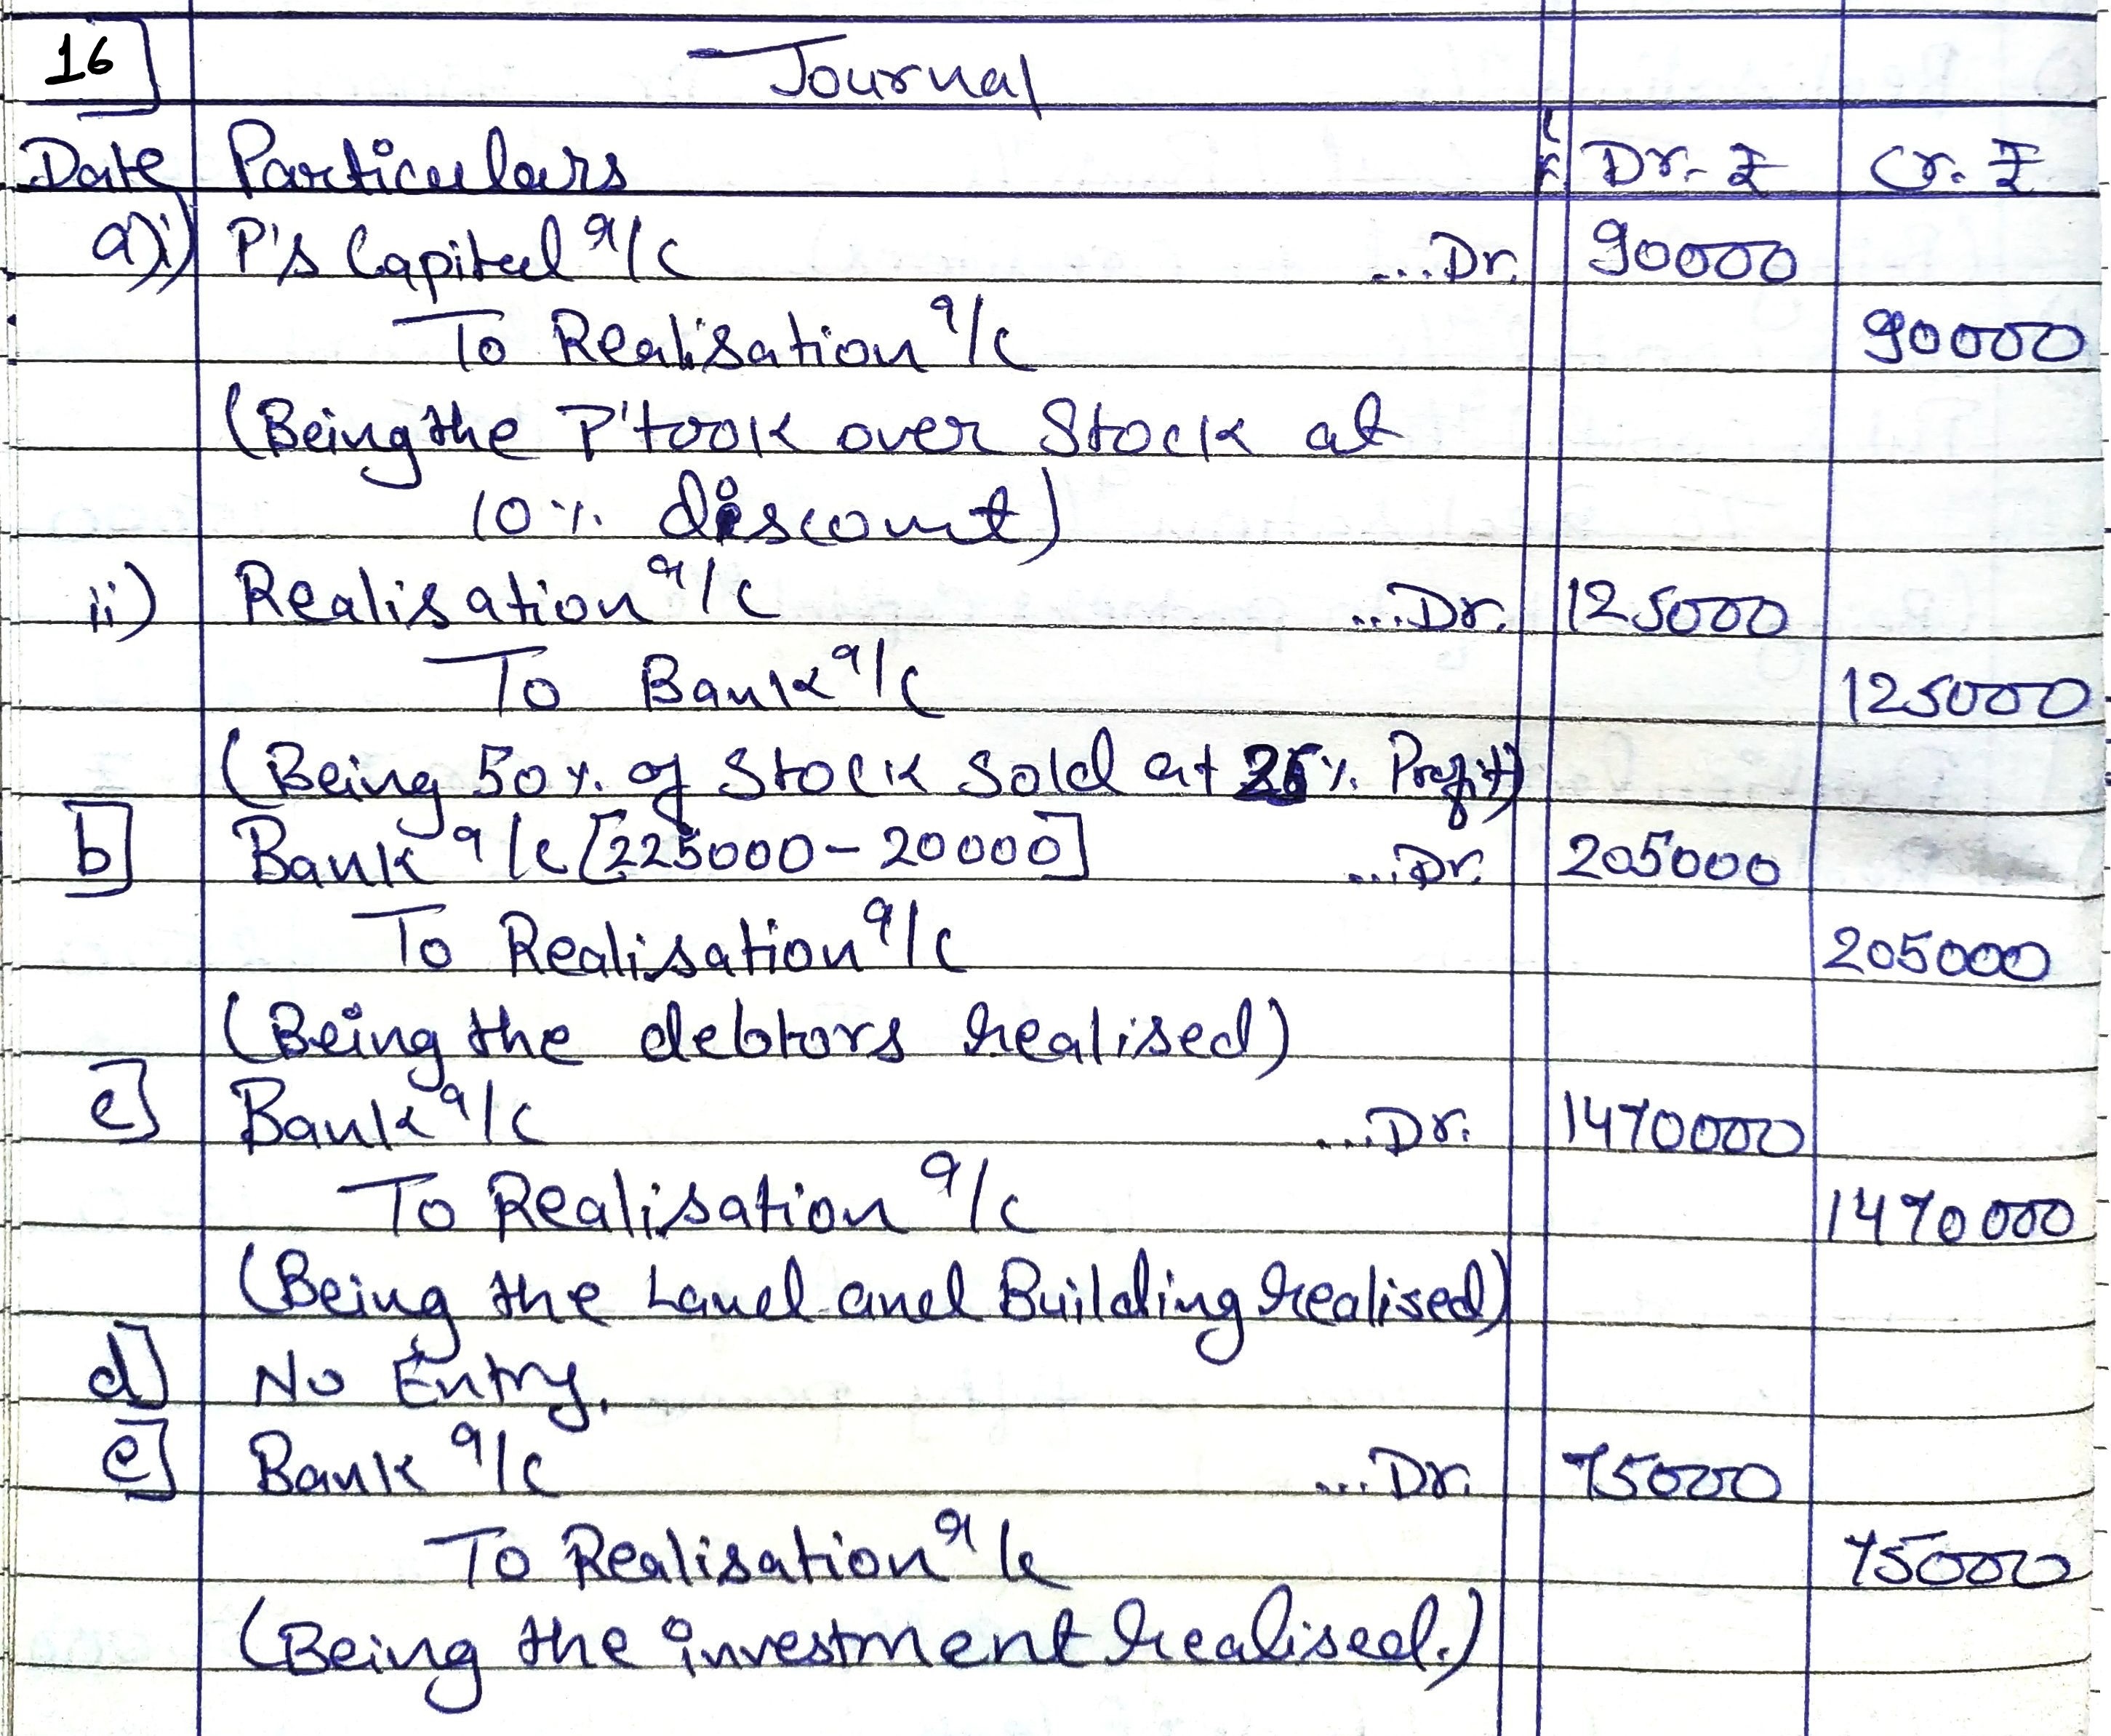 16
Journal
Date Particulars L.F. Dr. ₹ Cr. ₹
a)i) P's Capital a/c ...Dr. 90000
To Realisation a/c 90000
(Being the P' took over Stock at
10% discount)
ii) Realisation a/c ...Dr. 125000
To Bank a/c 125000
(Being 50% of Stock Sold at 25% Profit)
b] Bank a/c [225000-20000] ...Dr. 205000
To Realisation a/c 205000
(Being the debtors realised)
c] Bank a/c ...Dr. 1470000
To Realisation a/c 1470000
(Being the Land and Building realised)
d] No Entry.
e] Bank a/c ...Dr. 75000
To Realisation a/c 75000
(Being the investment realised.)